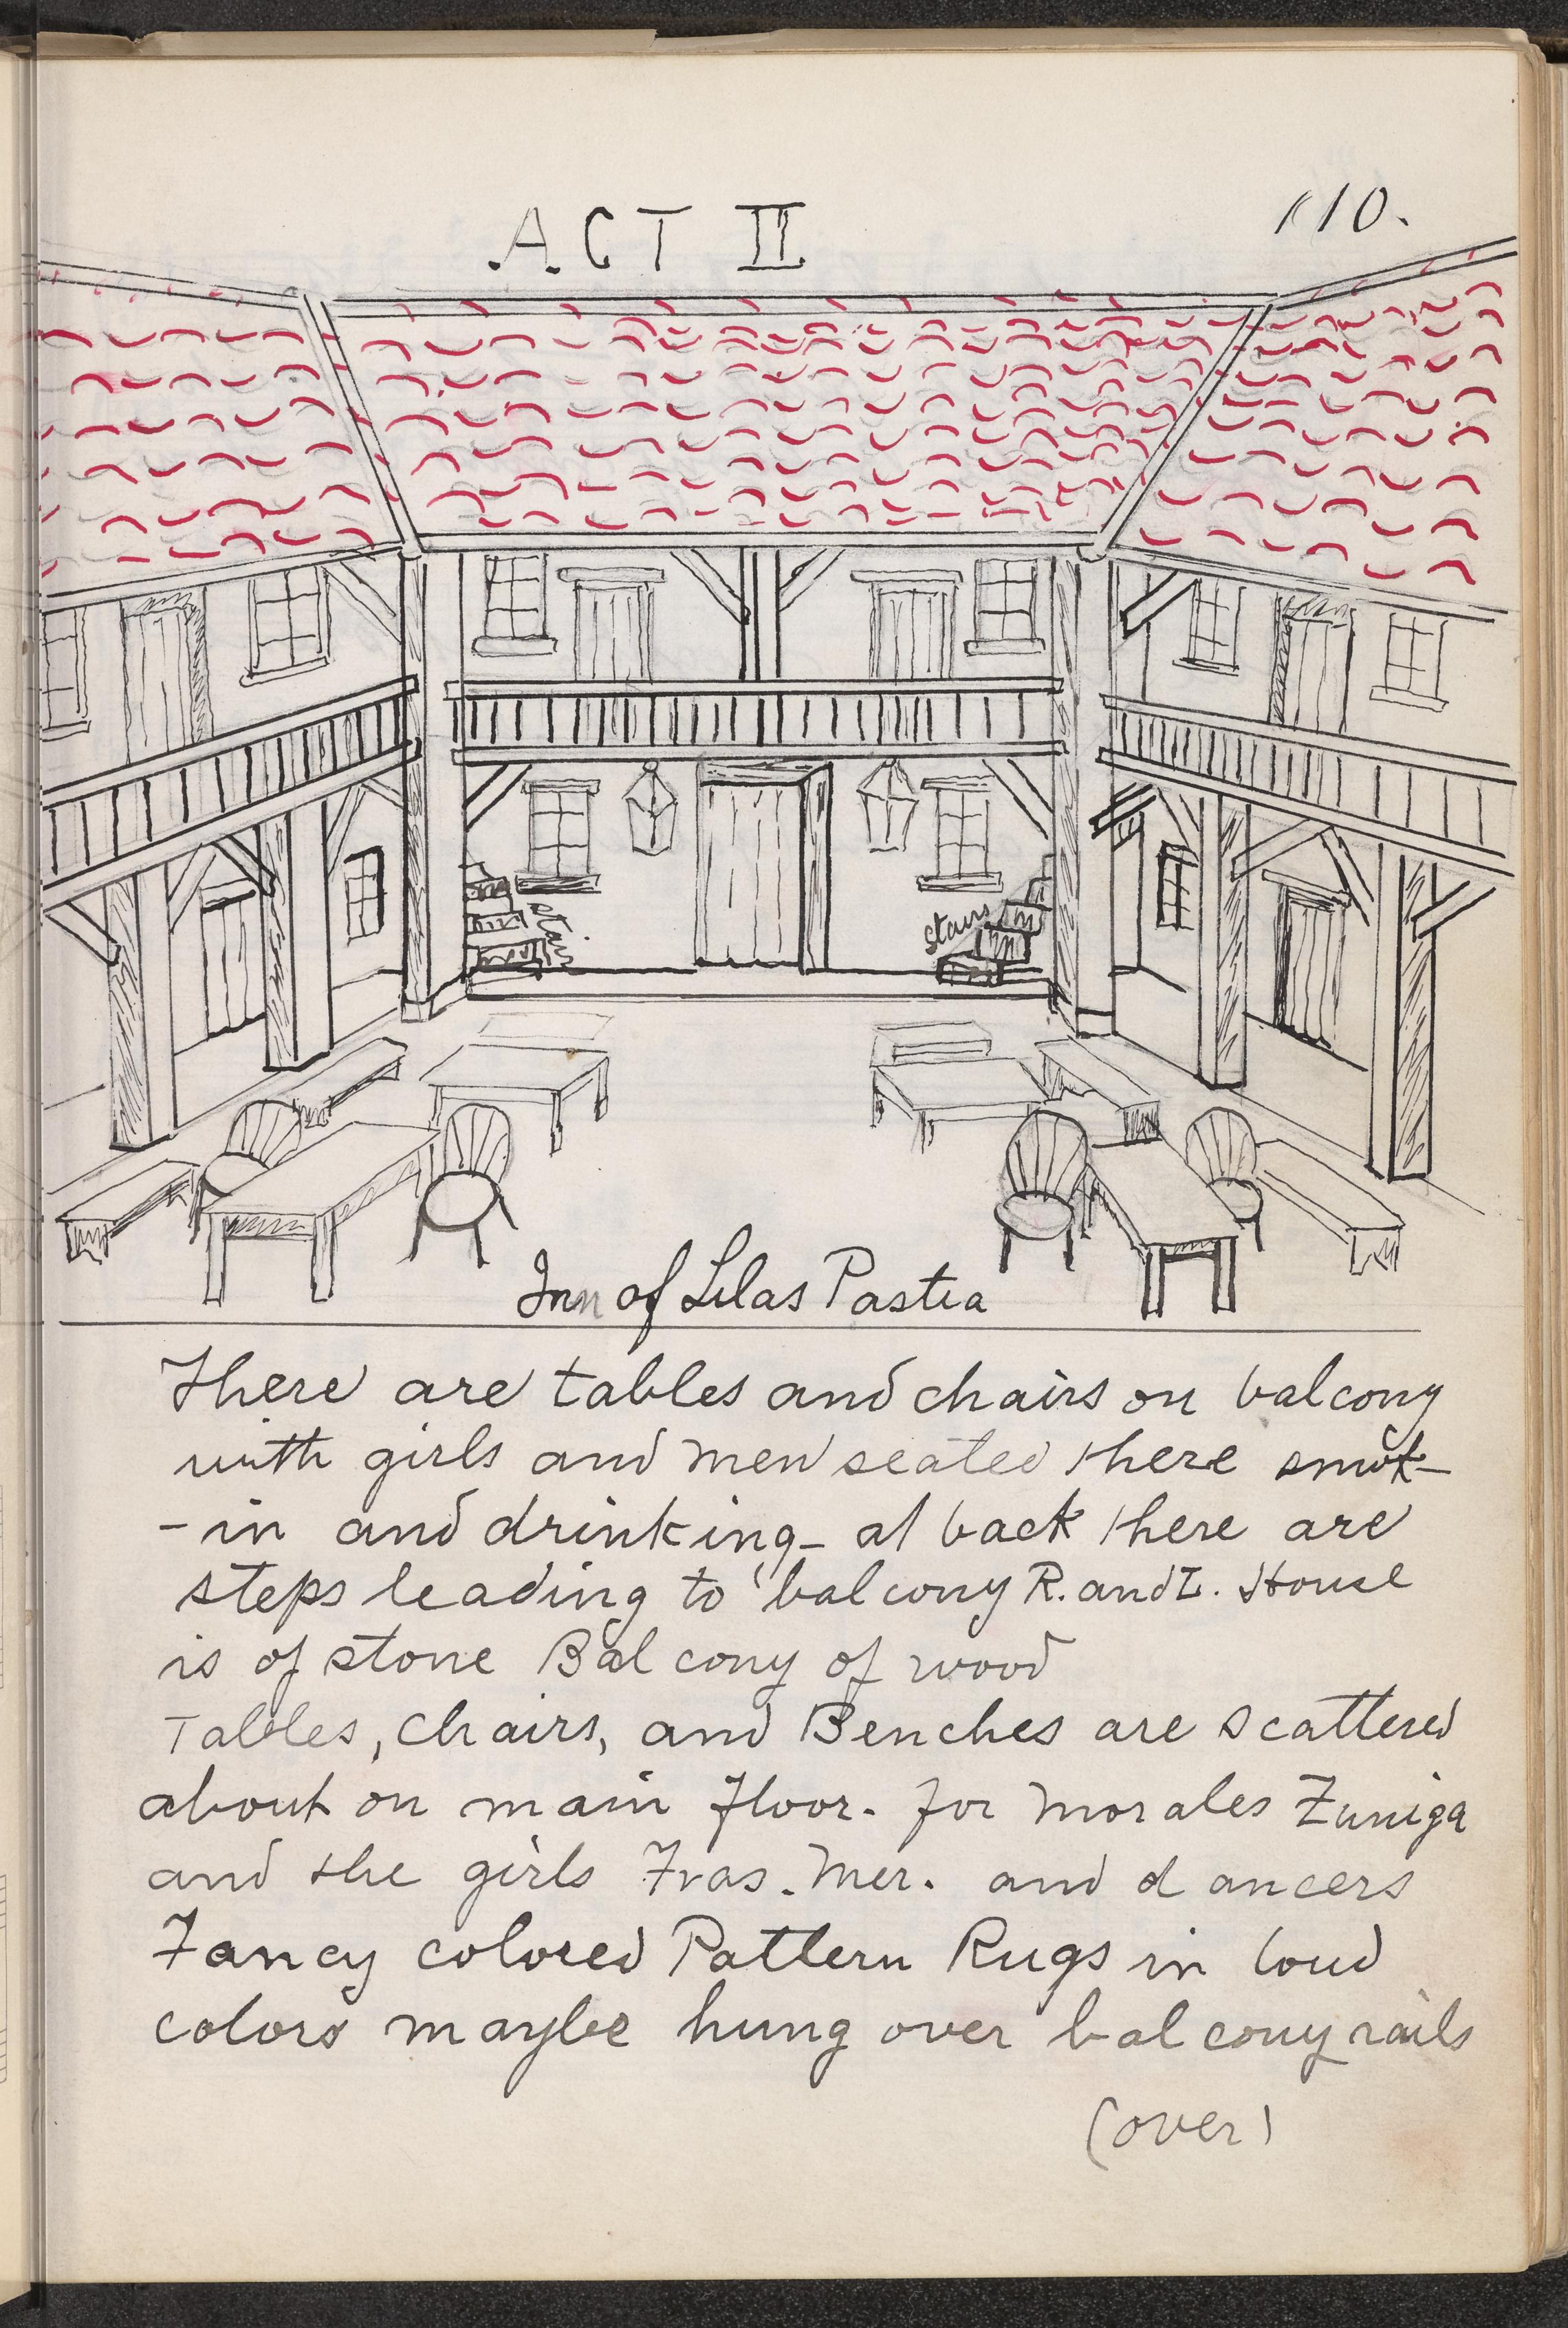 ACT II
110.
stairs
Inn of Lilas Pastia
There are tables and chairs on balcony
with girls and men seated there smok-
-in and drinking - at back there are
steps leading to balcony R. and L. House
is of stone Balcony of wood
Tables, chairs, and Benches are scattered
about on main floor. for Morales Zuniga
and the girls Fras. Mer. and dancers
Fancy colored Pattern Rugs in loud
colors maybe hung over balcony rails
(over)